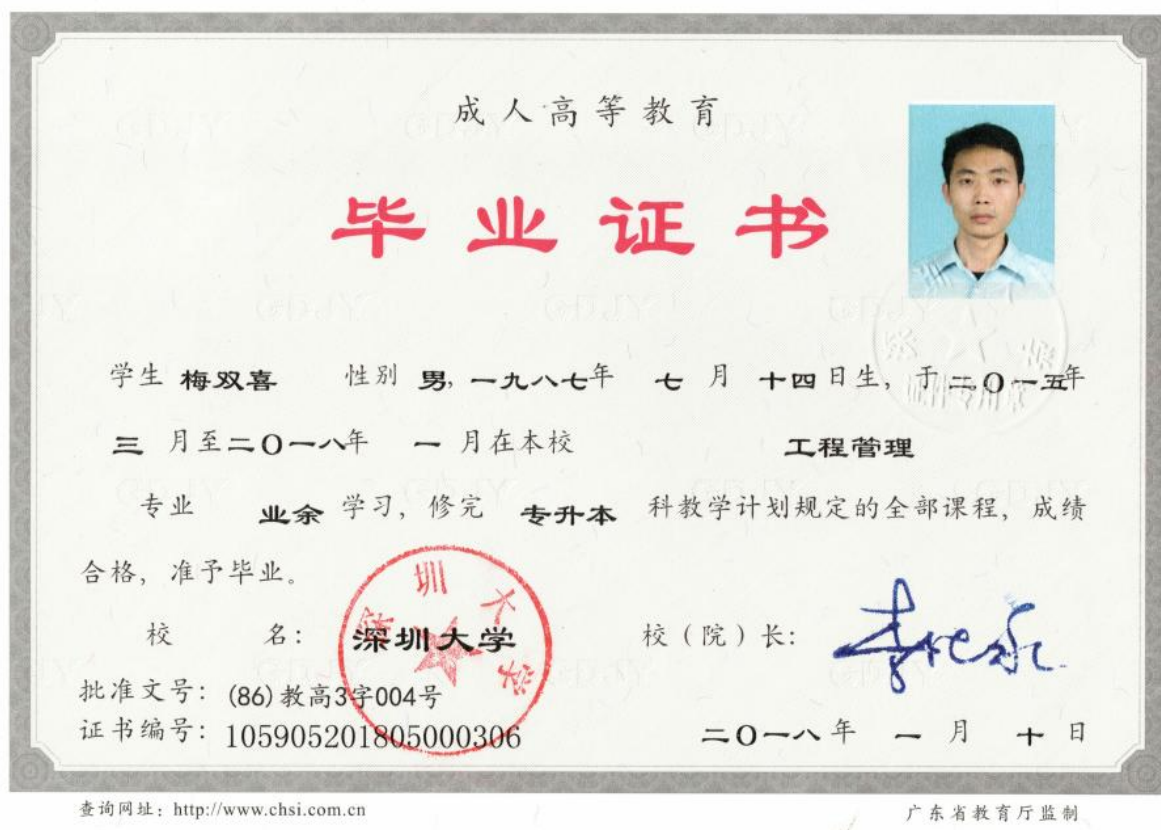 成人高等教育
毕业证书
学生 梅双喜 性别 男, 一九八七年 七 月 十四日生, 于二〇一五年
三 月至二〇一八年 一 月在本校 工程管理
专业 业余 学习, 修完 专升本 科教学计划规定的全部课程, 成绩
合格, 准予毕业。
校 名: 深圳大学 校（院）长:
深圳大学
批准文号: (86)教高3字004号
证书编号: 105905201805000306 二〇一八年 一 月 十 日
查询网址: http://www.chsi.com.cn 广东省教育厅监制
GDJY